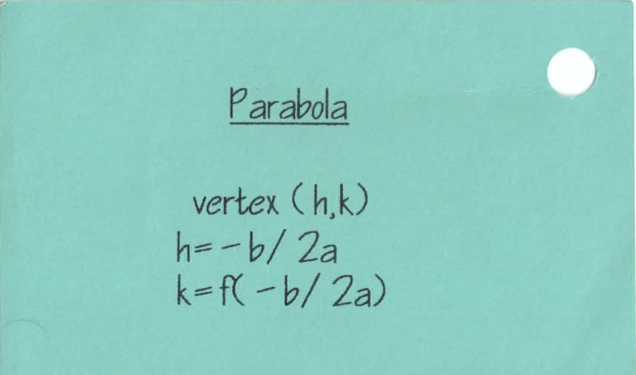 Parabola
vertex (h,k)
h=-b/ 2a
k=f(-b/ 2a)